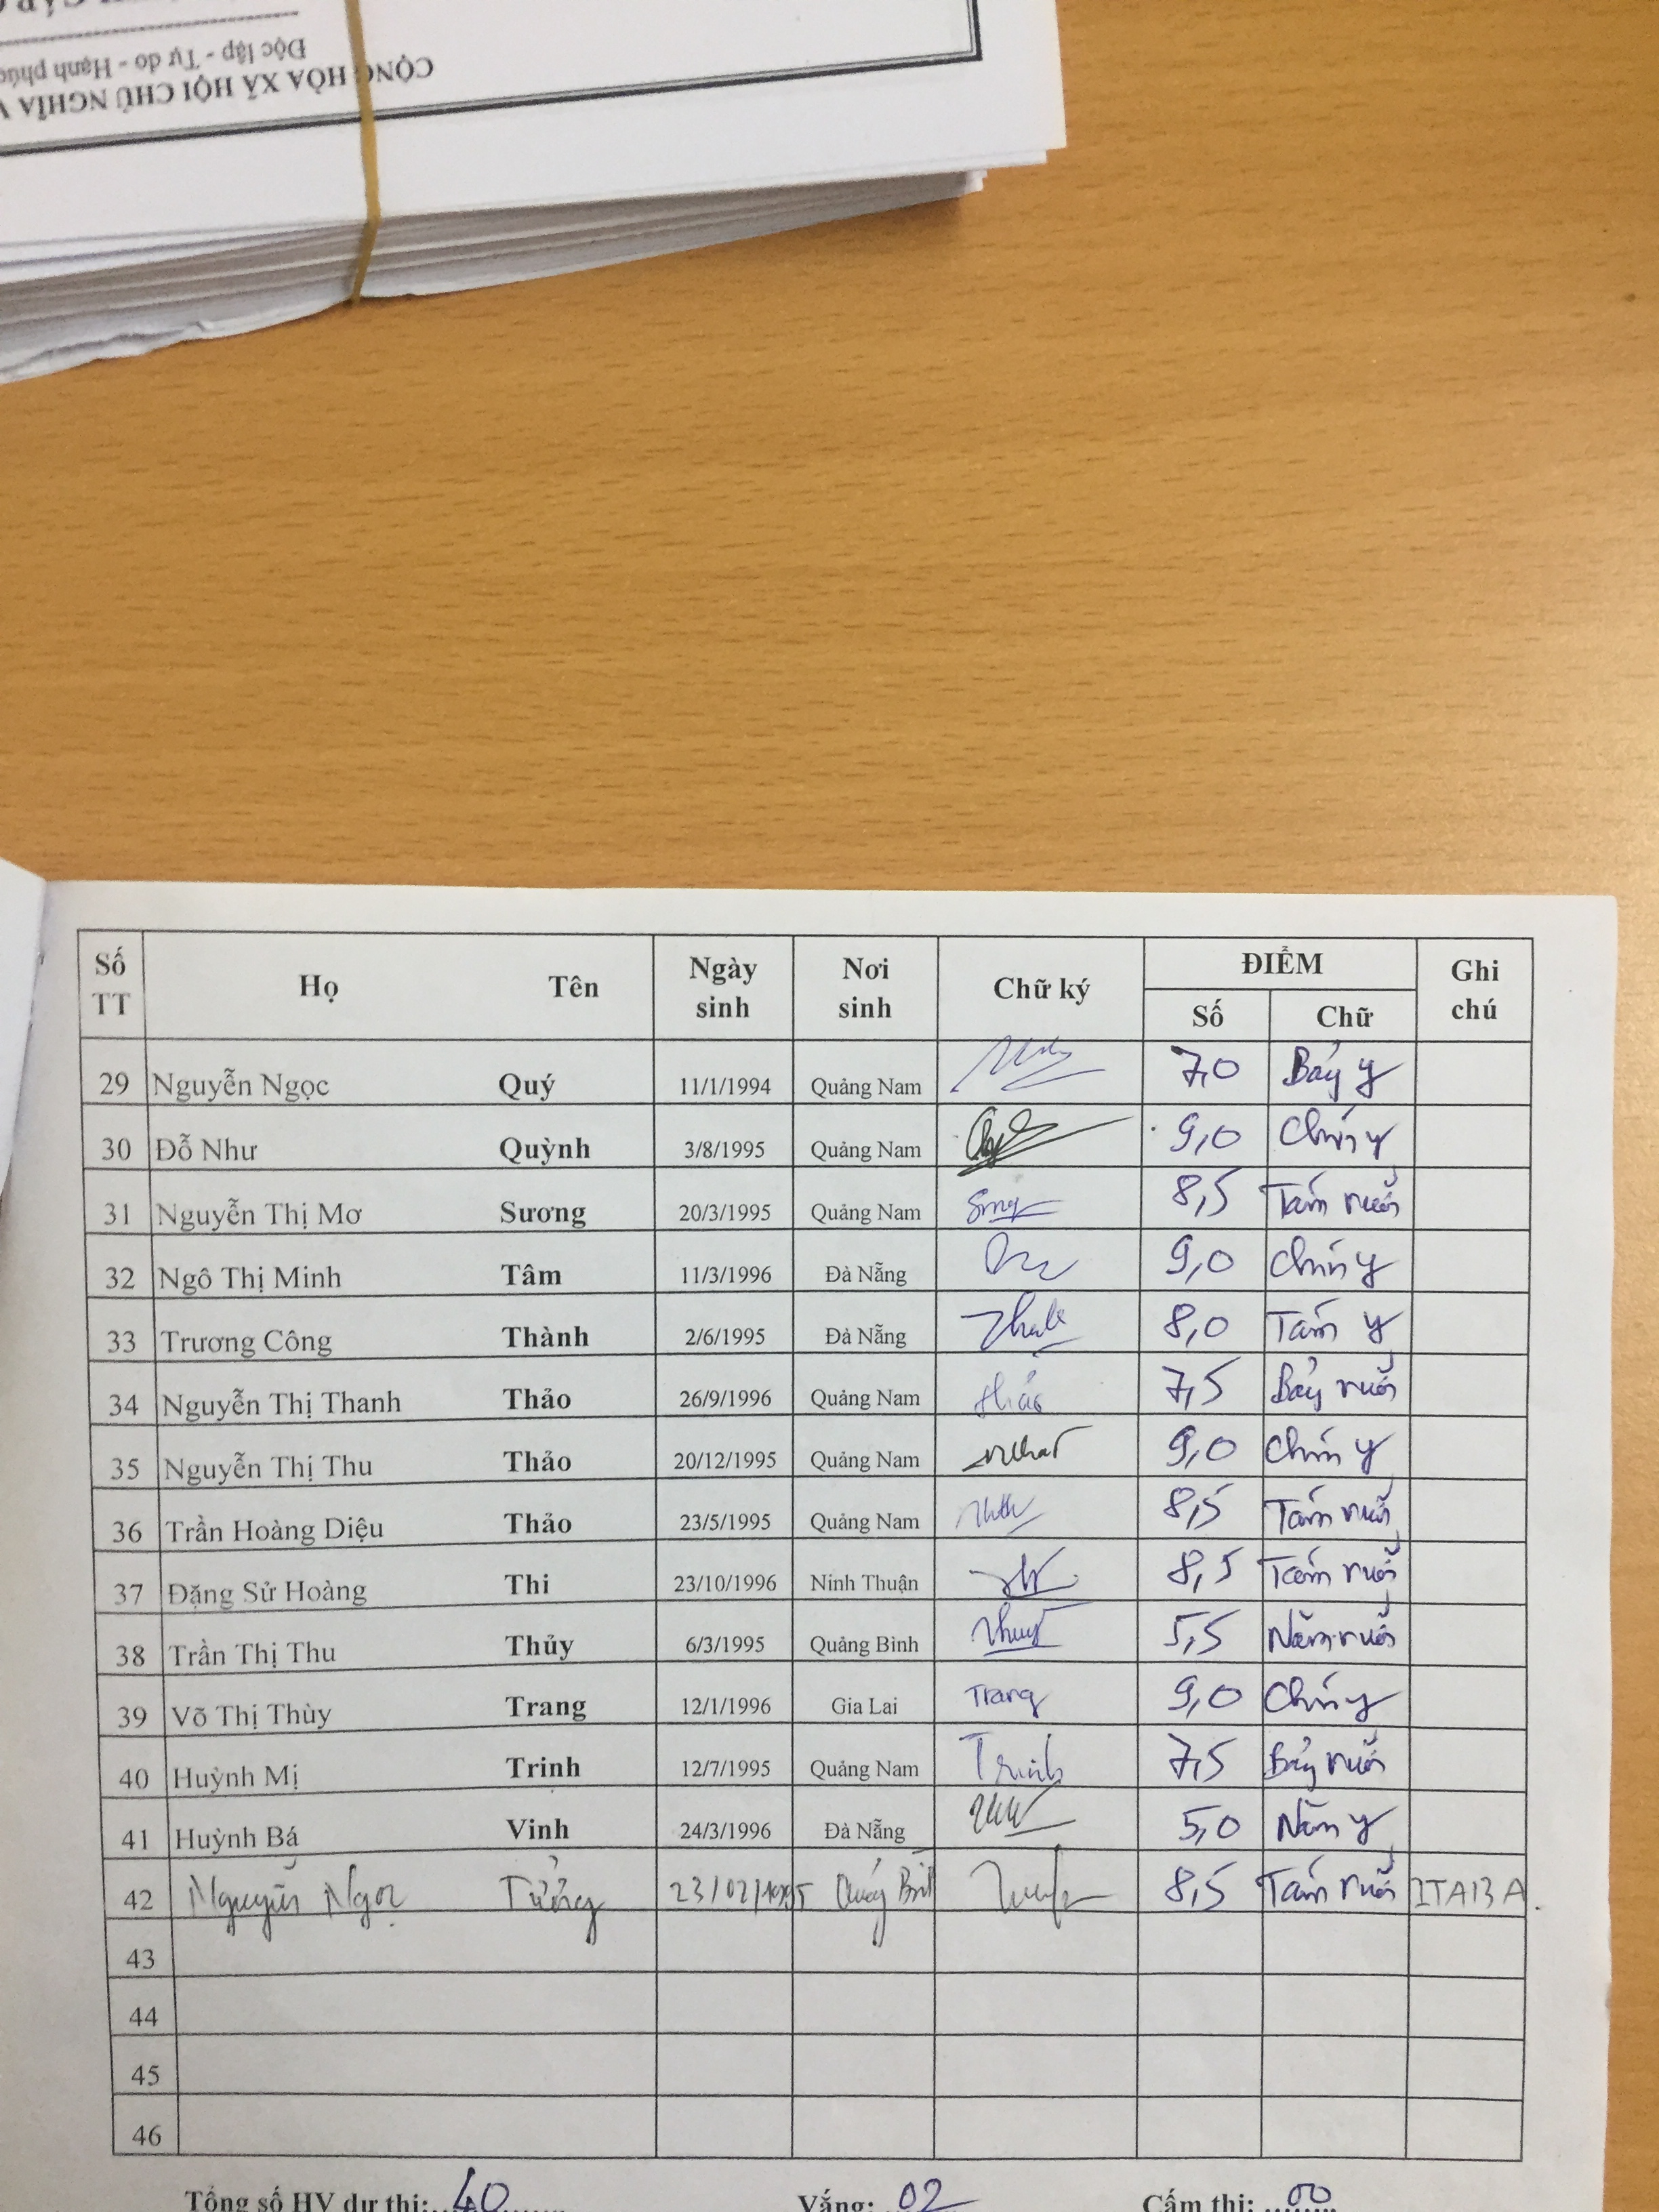 CỘNG HÒA XÃ HỘI CHỦ NGHĨA V
Độc lập - Tự do - Hạnh phúc
Số TT Họ Tên Ngày sinh Nơi sinh Chữ ký ĐIỂM Ghi chú
Số Chữ
29 Nguyễn Ngọc Quý 11/1/1994 Quảng Nam 7,0 Bảy y
30 Đỗ Như Quỳnh 3/8/1995 Quảng Nam 9,0 Chín y
31 Nguyễn Thị Mơ Sương 20/3/1995 Quảng Nam 8,5 Tám rưỡi
32 Ngô Thị Minh Tâm 11/3/1996 Đà Nẵng 9,0 Chín y
33 Trương Công Thành 2/6/1995 Đà Nẵng 8,0 Tám y
34 Nguyễn Thị Thanh Thảo 26/9/1996 Quảng Nam thảo 7,5 Bảy rưỡi
35 Nguyễn Thị Thu Thảo 20/12/1995 Quảng Nam 9,0 Chín y
36 Trần Hoàng Diệu Thảo 23/5/1995 Quảng Nam 8,5 Tám rưỡi
37 Đặng Sử Hoàng Thi 23/10/1996 Ninh Thuận 8,5 Tám rưỡi
38 Trần Thị Thu Thủy 6/3/1995 Quảng Bình Thuy 5,5 Năm rưỡi
39 Võ Thị Thùy Trang 12/1/1996 Gia Lai Trang 9,0 Chín y
40 Huỳnh Mị Trinh 12/7/1995 Quảng Nam Trinh 7,5 Bảy rưỡi
41 Huỳnh Bá Vinh 24/3/1996 Đà Nẵng 5,0 Năm y
42 Nguyễn Ngọc Tưởng 23/02/1995 8,5 Tám rưỡi ITA13A
43
44
45
46
Tổng số HV dự thi: 40 Vắng: 02 Cấm thi: 00